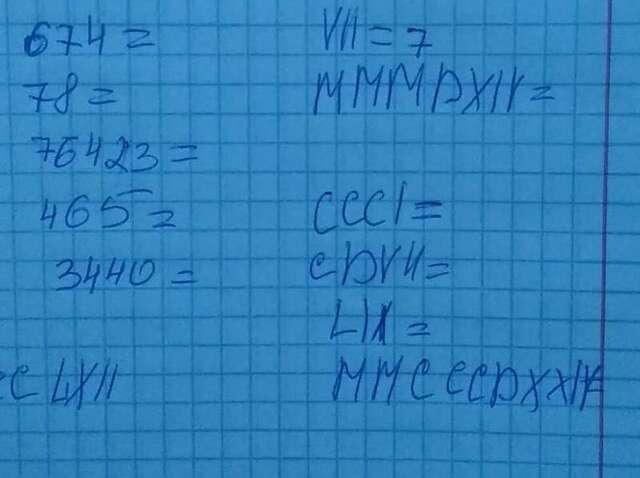 674 =
78 =
76423 =
465 =
3440 =
VII = 7
MMMDXIV =
CCCI =
CDVII =
LIX =
MMCCCDXXIV